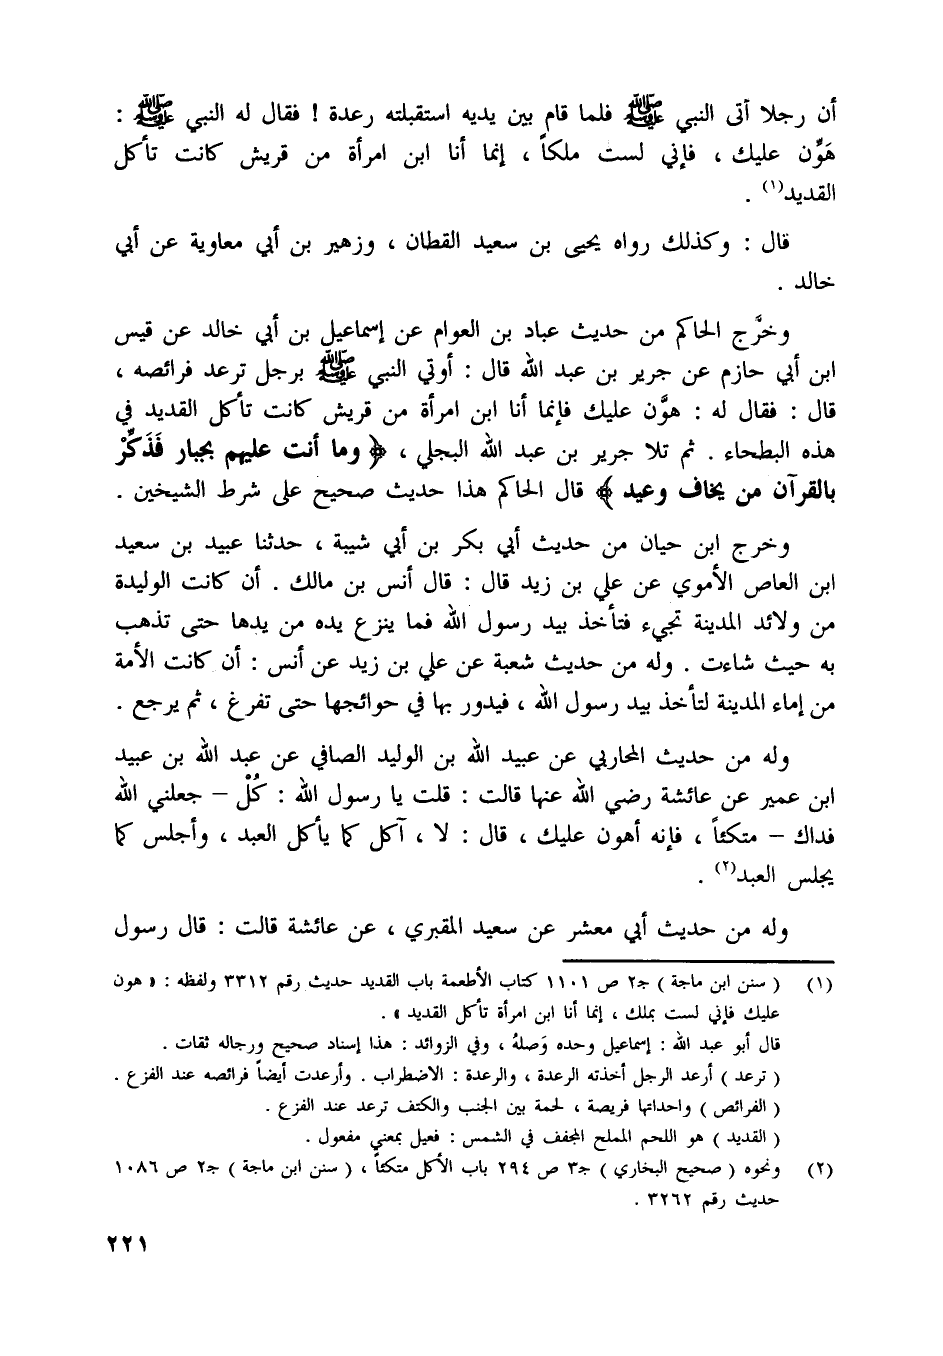 أن رجلا آتى النبي ﷺ فلما قام بين يديه استقبلته رعدة ! فقال له النبي ﷺ :
هَوِّن عليك ، فإني لست ملكاً ، إنما أنا ابن امرأة من قريش كانت تأكل
القديد(١) .
قال : وكذلك رواه يحيى بن سعيد القطان ، وزهير بن أبي معاوية عن أبي
خالد .
وخرَّج الحاكم من حديث عباد بن العوام عن إسماعيل بن أبي خالد عن قيس
ابن أبي حازم عن جرير بن عبد الله قال : أوتي النبي ﷺ برجل ترعد فرائصه ،
قال : فقال له : هوَّن عليك فإنما أنا ابن امرأة من قريش كانت تأكل القديد في
هذه البطحاء . ثم تلا جرير بن عبد الله البجلي ، ﴿ وما أنت عليهم بجبار فَذَكِّرْ
بالقرآن من يخاف وعيد ﴾ قال الحاكم هذا حديث صحيح على شرط الشيخين .
وخرج ابن حيان من حديث أبي بكر بن أبي شيبة ، حدثنا عبيد بن سعيد
ابن العاص الأموي عن علي بن زيد قال : قال أنس بن مالك . أن كانت الوليدة
من ولائد المدينة تجيء فتأخذ بيد رسول الله فما ينزع يده من يدها حتى تذهب
به حيث شاءت . وله من حديث شعبة عن علي بن زيد عن أنس : أن كانت الأمة
من إماء المدينة لتأخذ بيد رسول الله ، فيدور بها في حوائجها حتى تفرغ ، ثم يرجع .
وله من حديث المحاربي عن عبيد الله بن الوليد الصافي عن عبد الله بن عبيد
ابن عمير عن عائشة رضي الله عنها قالت : قلت يا رسول الله : كُلْ – جعلني الله
فداك – متكئاً ، فإنه أهون عليك ، قال : لا ، آكل كما يأكل العبد ، وأجلس كما
يجلس العبد(٢) .
وله من حديث أبي معشر عن سعيد المقبري ، عن عائشة قالت : قال رسول
(١) ( سنن ابن ماجة ) جـ٢ ص ١١٠١ كتاب الأطعمة باب القديد حديث رقم ٣٣١٢ ولفظه : « هون
عليك فإني لست بملك ، إنما أنا ابن امرأة تأكل القديد » .
قال أبو عبد الله : إسماعيل وحده وَصلهُ ، وفي الزوائد : هذا إسناد صحيح ورجاله ثقات .
( ترعد ) أرعد الرجل أخذته الرعدة ، والرعدة : الاضطراب . وأرعدت أيضاً فرائصه عند الفزع .
( الفرائص ) واحداتها فريصة ، لحمة بين الجنب والكتف ترعد عند الفزع .
( القديد ) هو اللحم المملح المجفف في الشمس : فعيل بمعني مفعول .
(٢) ونحوه ( صحيح البخاري ) جـ٣ ص ٢٩٤ باب الأكل متكئاً ، ( سنن ابن ماجة ) جـ٢ ص ١٠٨٦
حديث رقم ٣٢٦٢ .
٢٢١